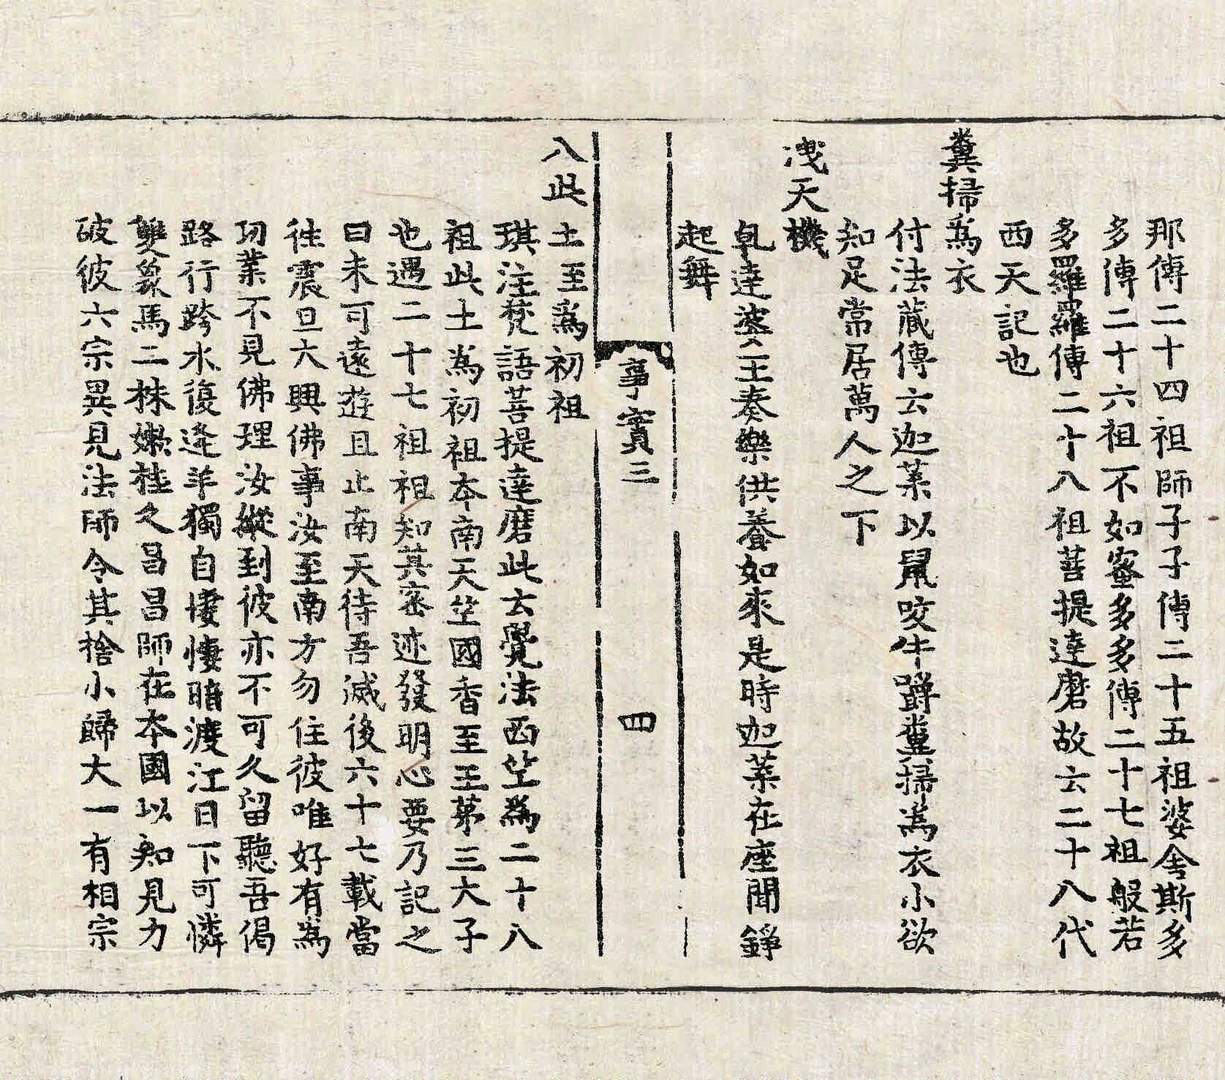 那傳二十四祖師子子傳二十五祖婆舍斯多
多傳二十六祖不如蜜多多傳二十七祖般若
多羅羅傳二十八祖菩提達磨故云二十八代
西天記也
糞掃為衣
付法藏傳云迦葉以鼠咬牛嚼糞掃為衣小欲
知足常居萬人之下
洩天機
乹達婆王奏樂供養如來是時迦葉在座聞錚
起舞
事實三
四
八此土至爲初祖
琪注梵語菩提達磨此云覺法西竺爲二十八
祖此土為初祖本南天竺國香至王第三太子
也遇二十七祖祖知其密迹發明心要乃記之
曰未可遠遊且止南天待吾滅後六十七載當
徃震旦大興佛事汝至南方勿住彼唯好有為
功業不見佛理汝縱到彼亦不可久留聽吾偈
路行跨水復逢羊獨自悽悽暗渡江日下可憐
雙象馬二株嫩桂久昌昌師在本國以知見力
破彼六宗異見法師令其捨小歸大一有相宗